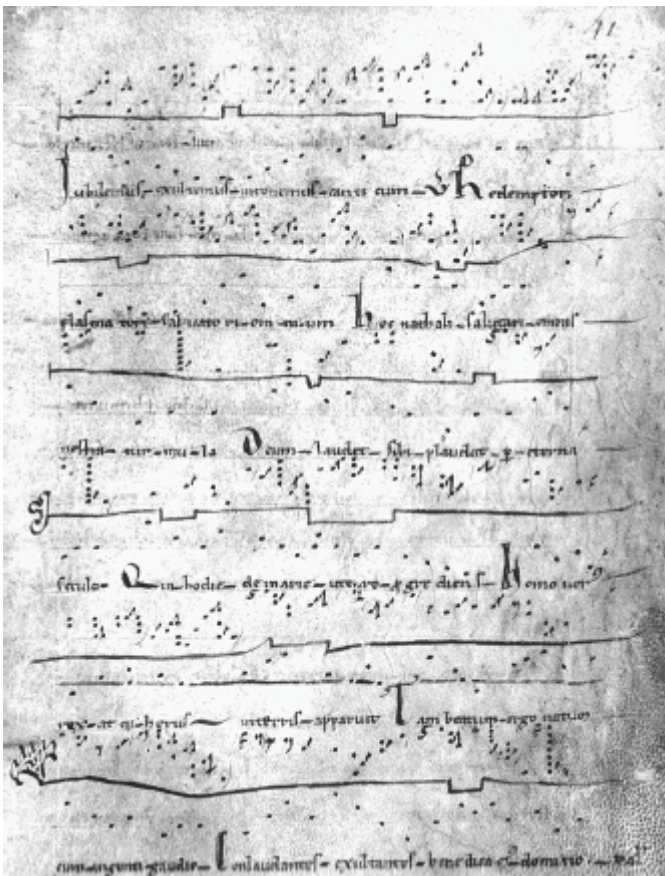 41
Iubilemus exultemus intonemus canticum Redemptori
plasmatori salvatori omnium hoc nathali salutari omnis
nostra turmula Deum laudet sibi plaudet p eterna
secula Qui hodie de marie utero progrediens homo ver
rex atq herus in terris apparuit Tam beatum ergo natum
cum ingenti gaudio Conlaudantes exultantes benedica domino